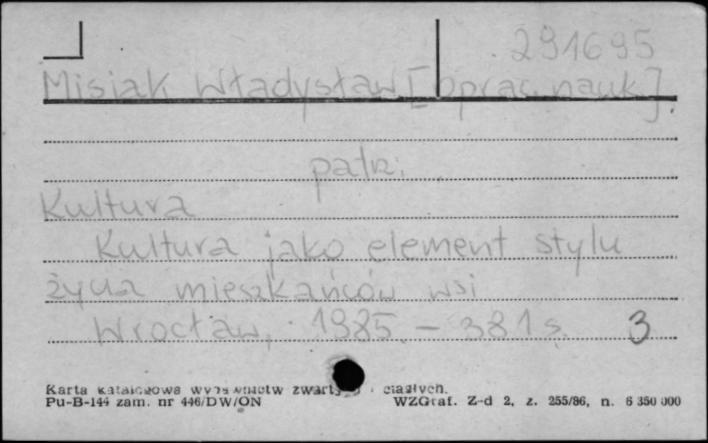 291695
Misiak Władysław [oprac. nauk.].
patrz:
Kultura
Kultura jako element stylu
życia mieszkańców wsi
Wrocław, 1985. - 381 s. 3
Karta katalogowa wydawnictw zwartych i ciągłych.
Pu-B-144 zam. nr 446/DW/ON WZGraf. Z-d 2, z. 255/86, n. 6 350 000